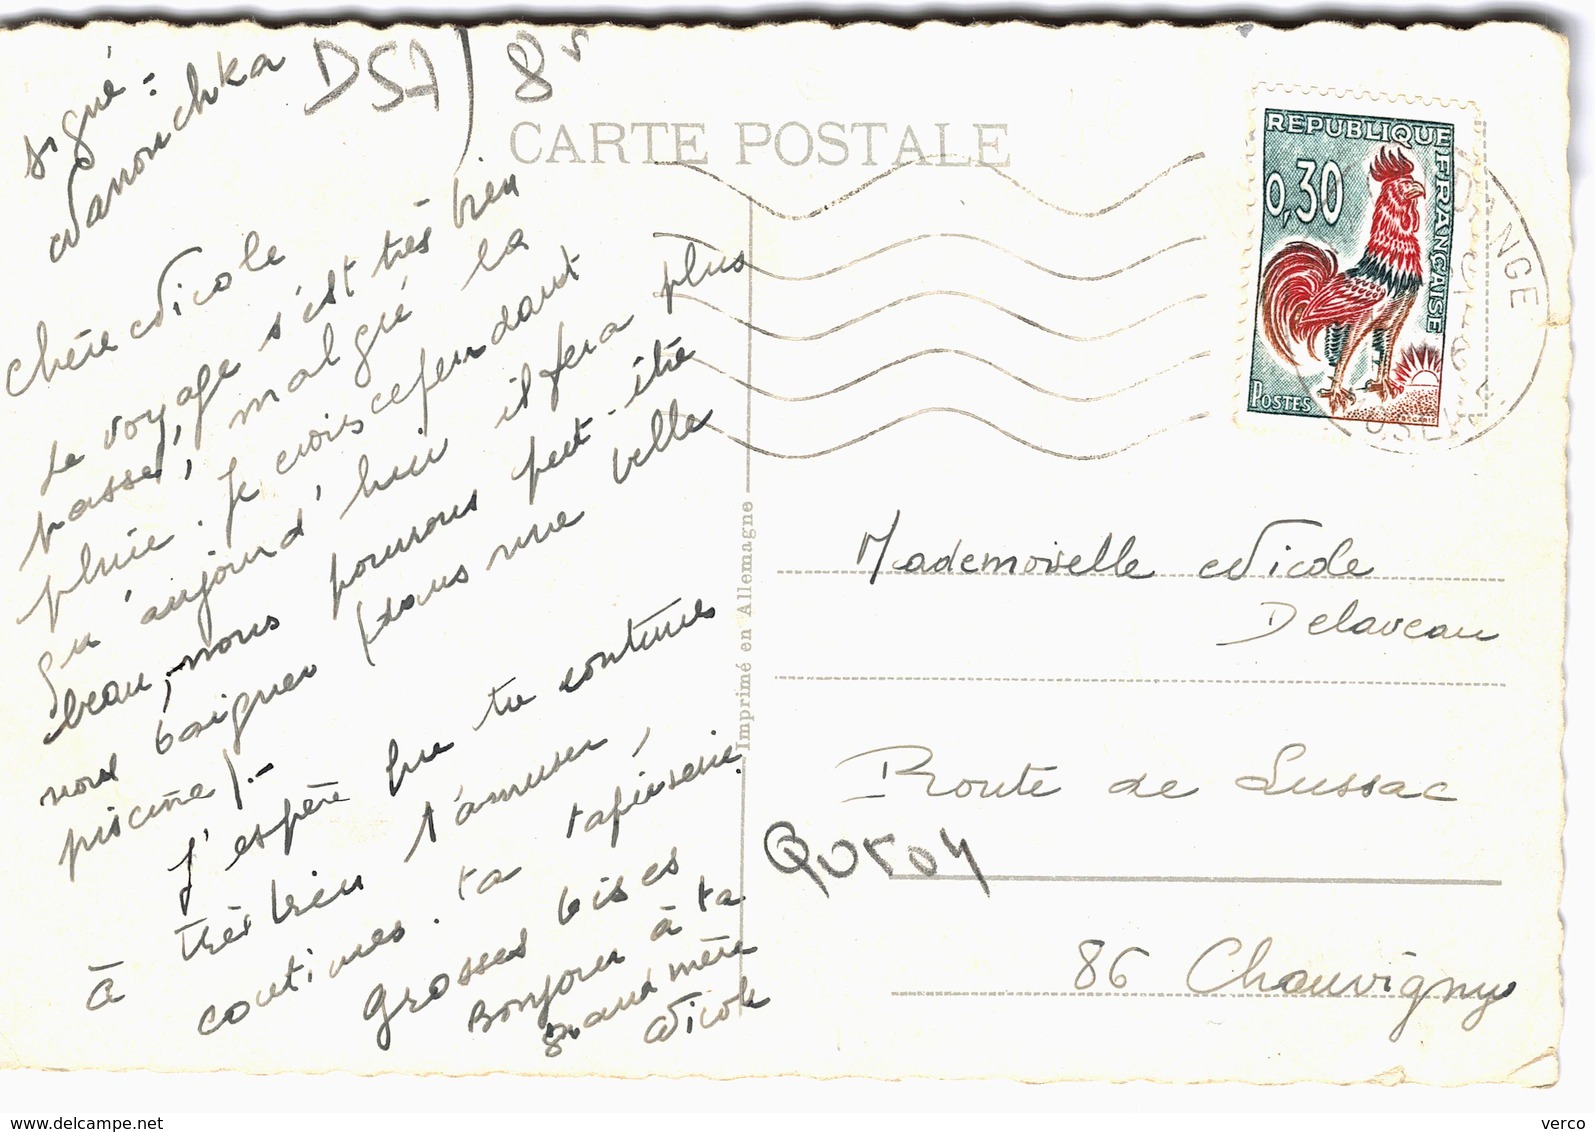 signé :
Nanouchka
DSA / 8
CARTE POSTALE
REPUBLIQUE FRANÇAISE
0,30
POSTES
Chère Nicole
Le voyage s'est très bien
passé, malgré la
pluie. Je crois cependant
qu'aujourd'hui il fera plus
beau, nous pourrons peut-être
nous baigner (dans une belle
piscine).-
J'espère que tu continues
à très bien t'amuser,
continues ta tapisserie.
Grosses bises
Bonjour à ta
grand mère
Nicole
Imprimé en Allemagne
Mademoiselle Nicole
Delaveau
Route de Lussac
86 Chauvigny
www.delcampe.net
verco